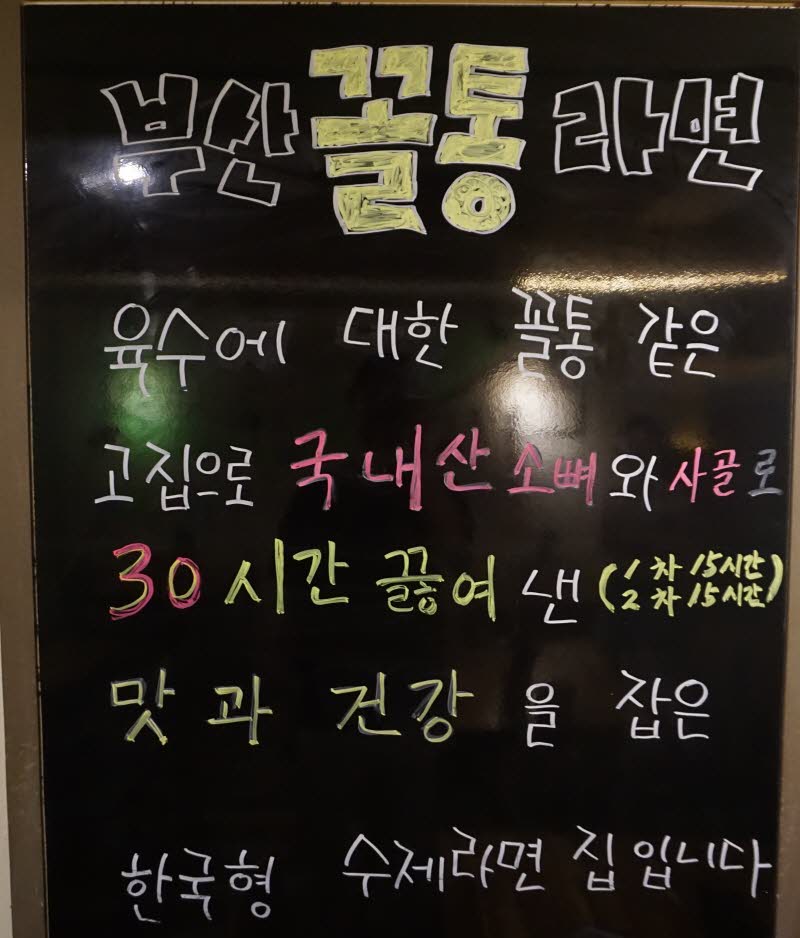 부산 꼴통 라면
육수에 대한 꼴통 같은
고집으로 국내산 소뼈와 사골로
30시간 끓여 낸 (1차 15시간
2차 15시간)
맛과 건강을 잡은
한국형 수제라면 집입니다